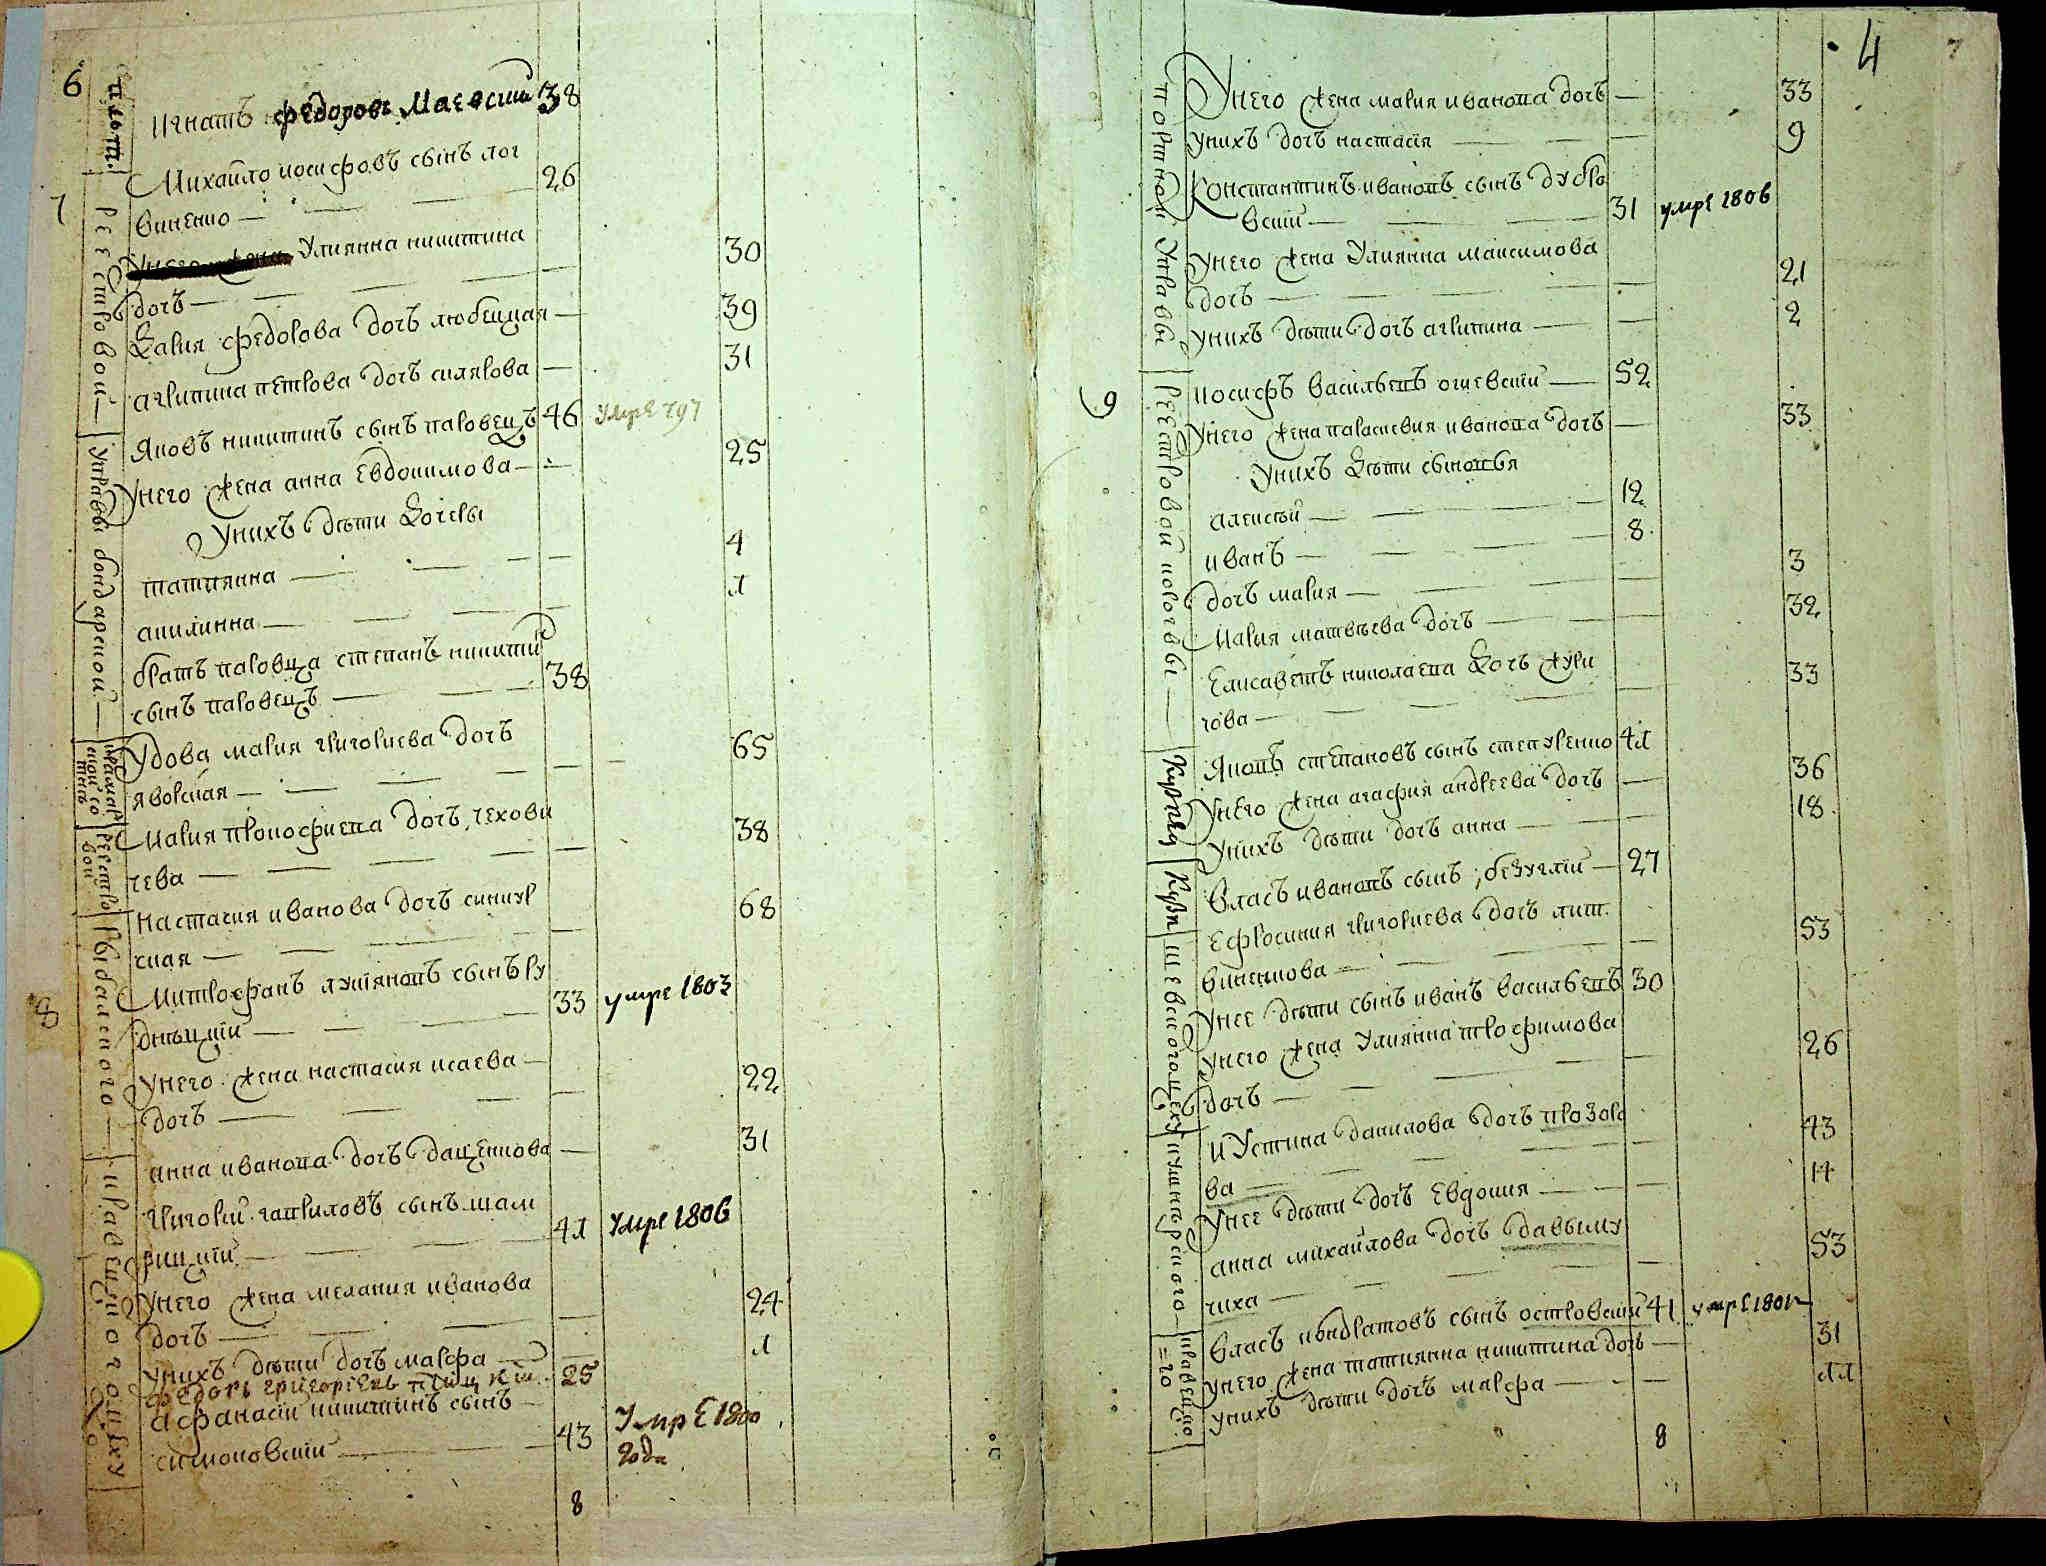 6
Игнатъ Федоровъ Маевскии 38
7
Михайло иосифовъ сынъ лог
виненко — 26
Унего жена Улиянна никитина
дочь — 30
Мария федорова дочь любецкая — 39
агрипина петрова дочь силярова — 31
Яковъ никитинъ сынъ паровецъ 46 умре 797
Унего жена анна Евдокимова — 25
Унихъ дѣти дочеры
татиянна — 4
акилинна — 1
братъ паровца степанъ никити
сынъ паровецъ — 38
Удова мария григориева дочъ
яворская — 65
Мария прокофиева дочъ чехови
чева — 38
Настасия иванова дочъ синиур
ская — 68
8
Митрофанъ лукяновъ сынъ ру
дницкіи — 33 умре 1803
Унего жена настасия исаева —
дочъ — 22
анна иванова дочъ даценкова — 31
Григорій гавриловъ сынъ шам
рицкіи — 41 умре 1806
Унего жена мелания иванова
дочъ — 24
Унихъ дѣти дочъ марфа — 1
федоръ григориевъ 25
афанасіи никитинъ сынъ —
симоновскіи — 43 Умре 1800
года
8
реестровой
управы бондарской
реестровой
рыбалского
кравецкого цеху
4
7
Унего жена мария иванова дочъ — 33
унихъ дочъ настасія — 9
Константинъ ивановъ сынъ дубро
вскіи — 31 умре 1806
Унего жена Улиянна максимова
дочъ — 21
унихъ дѣти дочъ агрипина — 2
9
иосифъ васильевъ огиевскіи — 52
Унего жена параскевия иванова дочъ — 33
Унихъ дѣти сыновья
алексѣй — 12
иванъ — 8
дочъ мария — 3
Мария матвѣева дочъ — 32
Елисаветъ николаева дочъ жури
гова — 33
Яковъ степановъ сынъ степуренко 41
Унего жена агафия андреева дочъ — 36
унихъ дѣти дочъ анна — 18
Власъ ивановъ сынъ безуглій — 27
Ефросиния григориева дочъ лит
виненкова — 53
Унее дѣти сынъ иванъ васильевъ 30
унего жена Улиянна трофимова
дочъ — 26
иУстина данилова дочъ прозоро
ва — 43
Унее дѣти дочъ Евдокия — 14
анна михайлова дочъ давыму
чиха — 53
Власъ кондратовъ сынъ островскіи 41 умре
унего жена татиянна никитина дочъ — 31
унихъ дѣти дочъ марфа — 11
8
портной управы
реестровой
шевского цеху
кушнѣрского
кравецко
=го